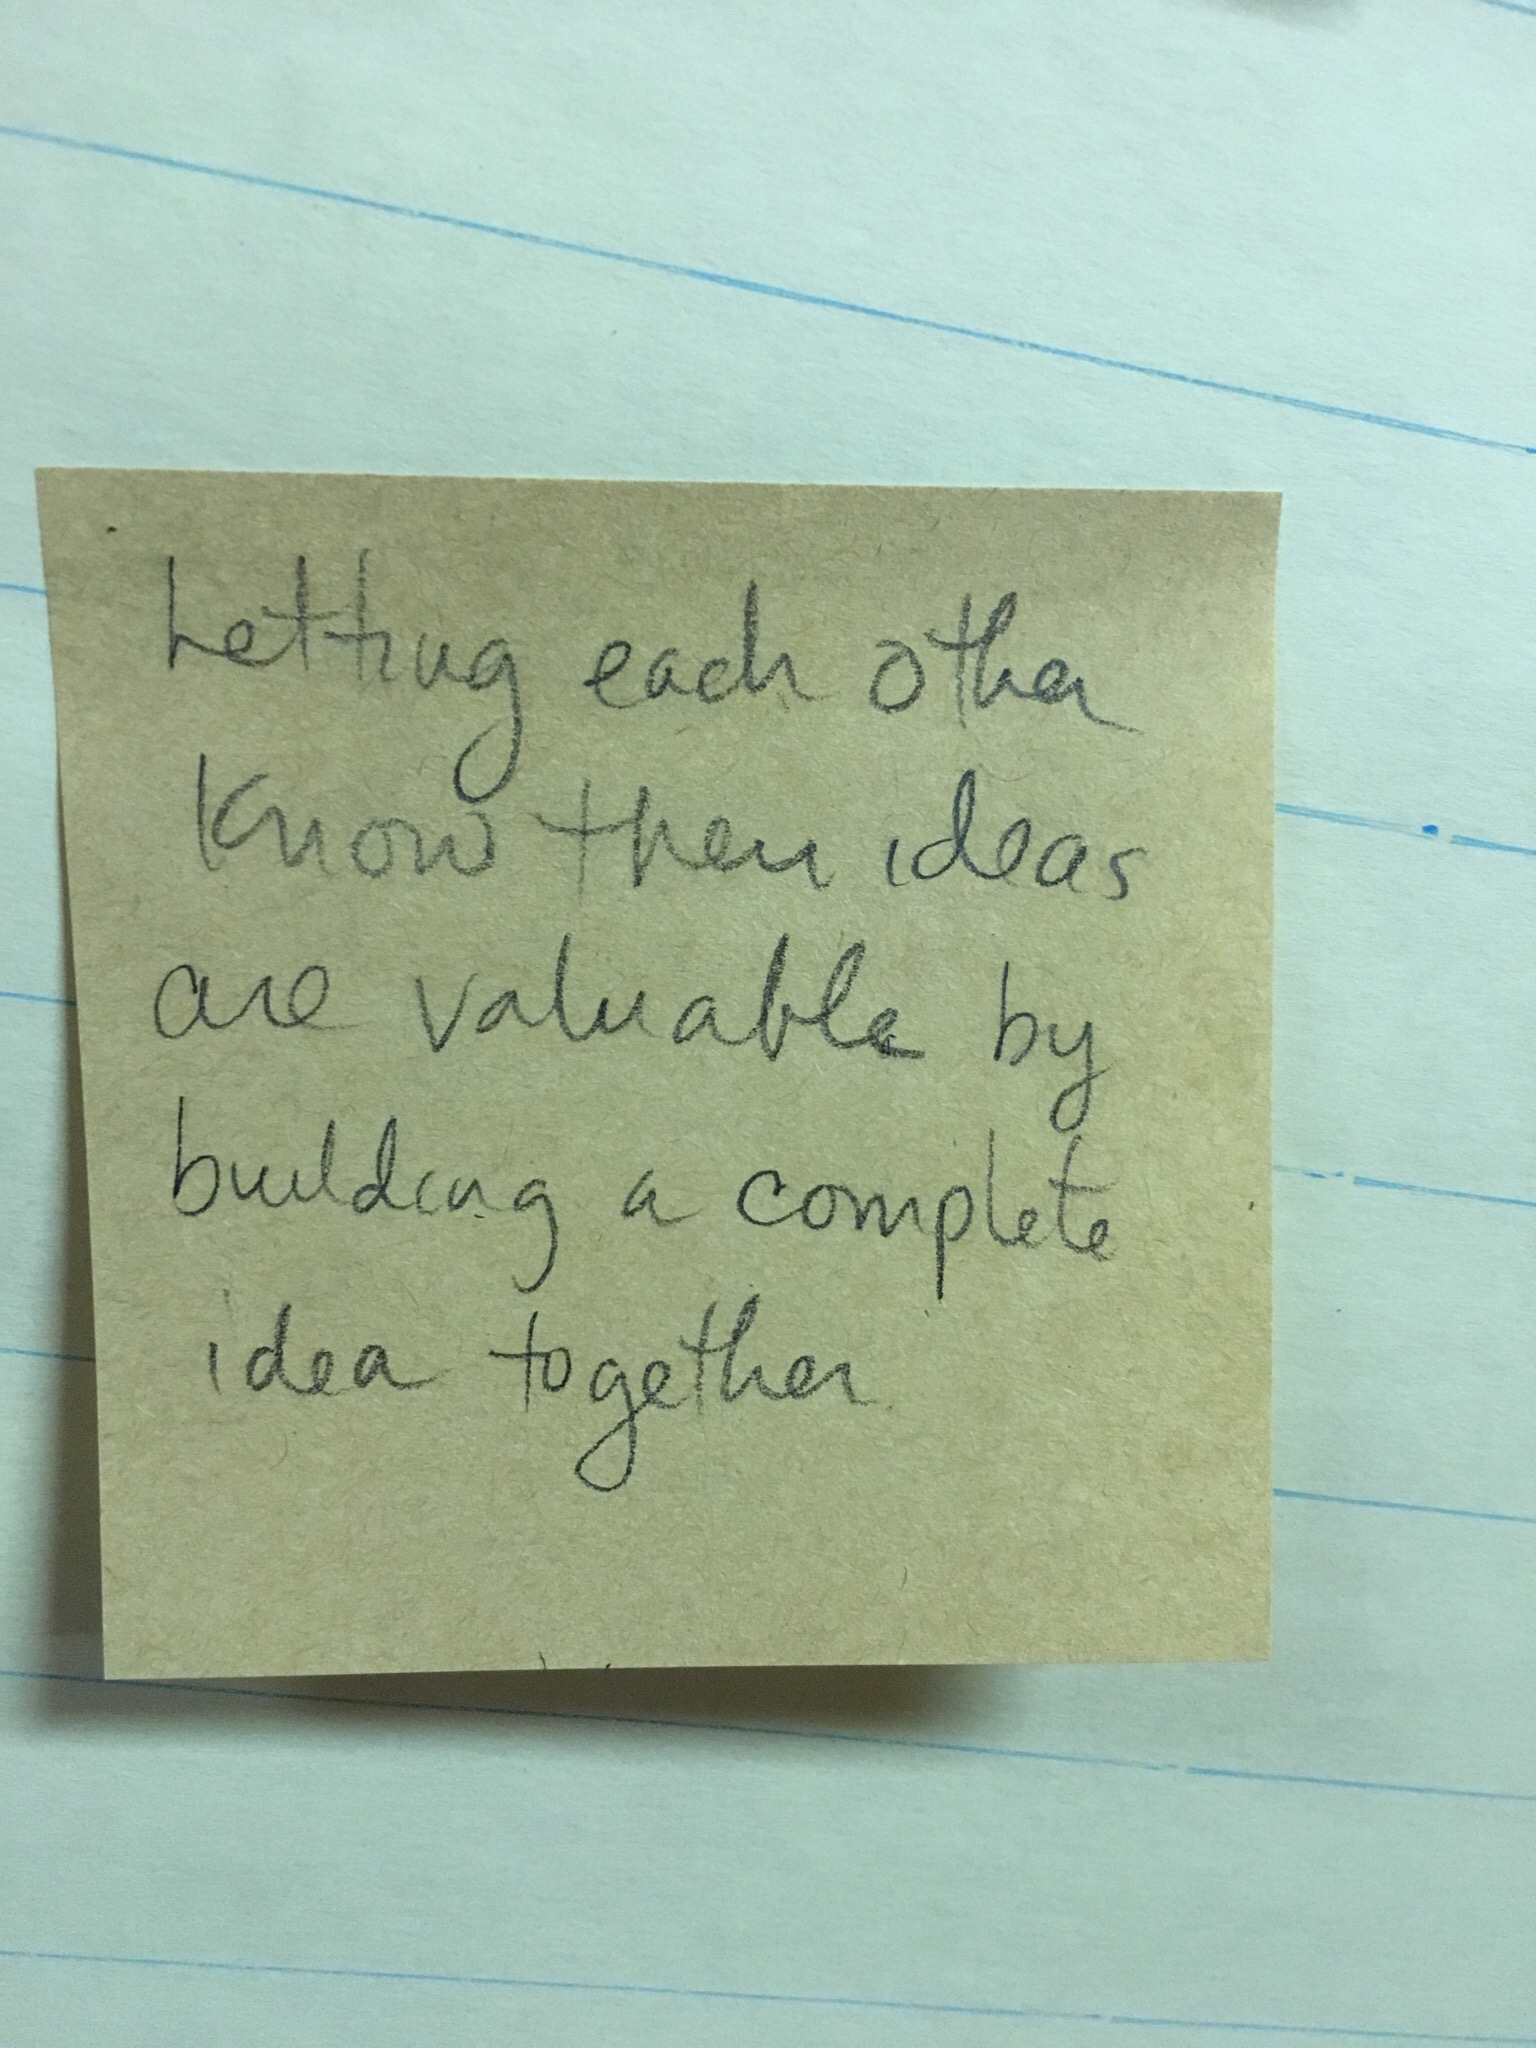 Letting each other
know their ideas
are valuable by
building a complete
idea together